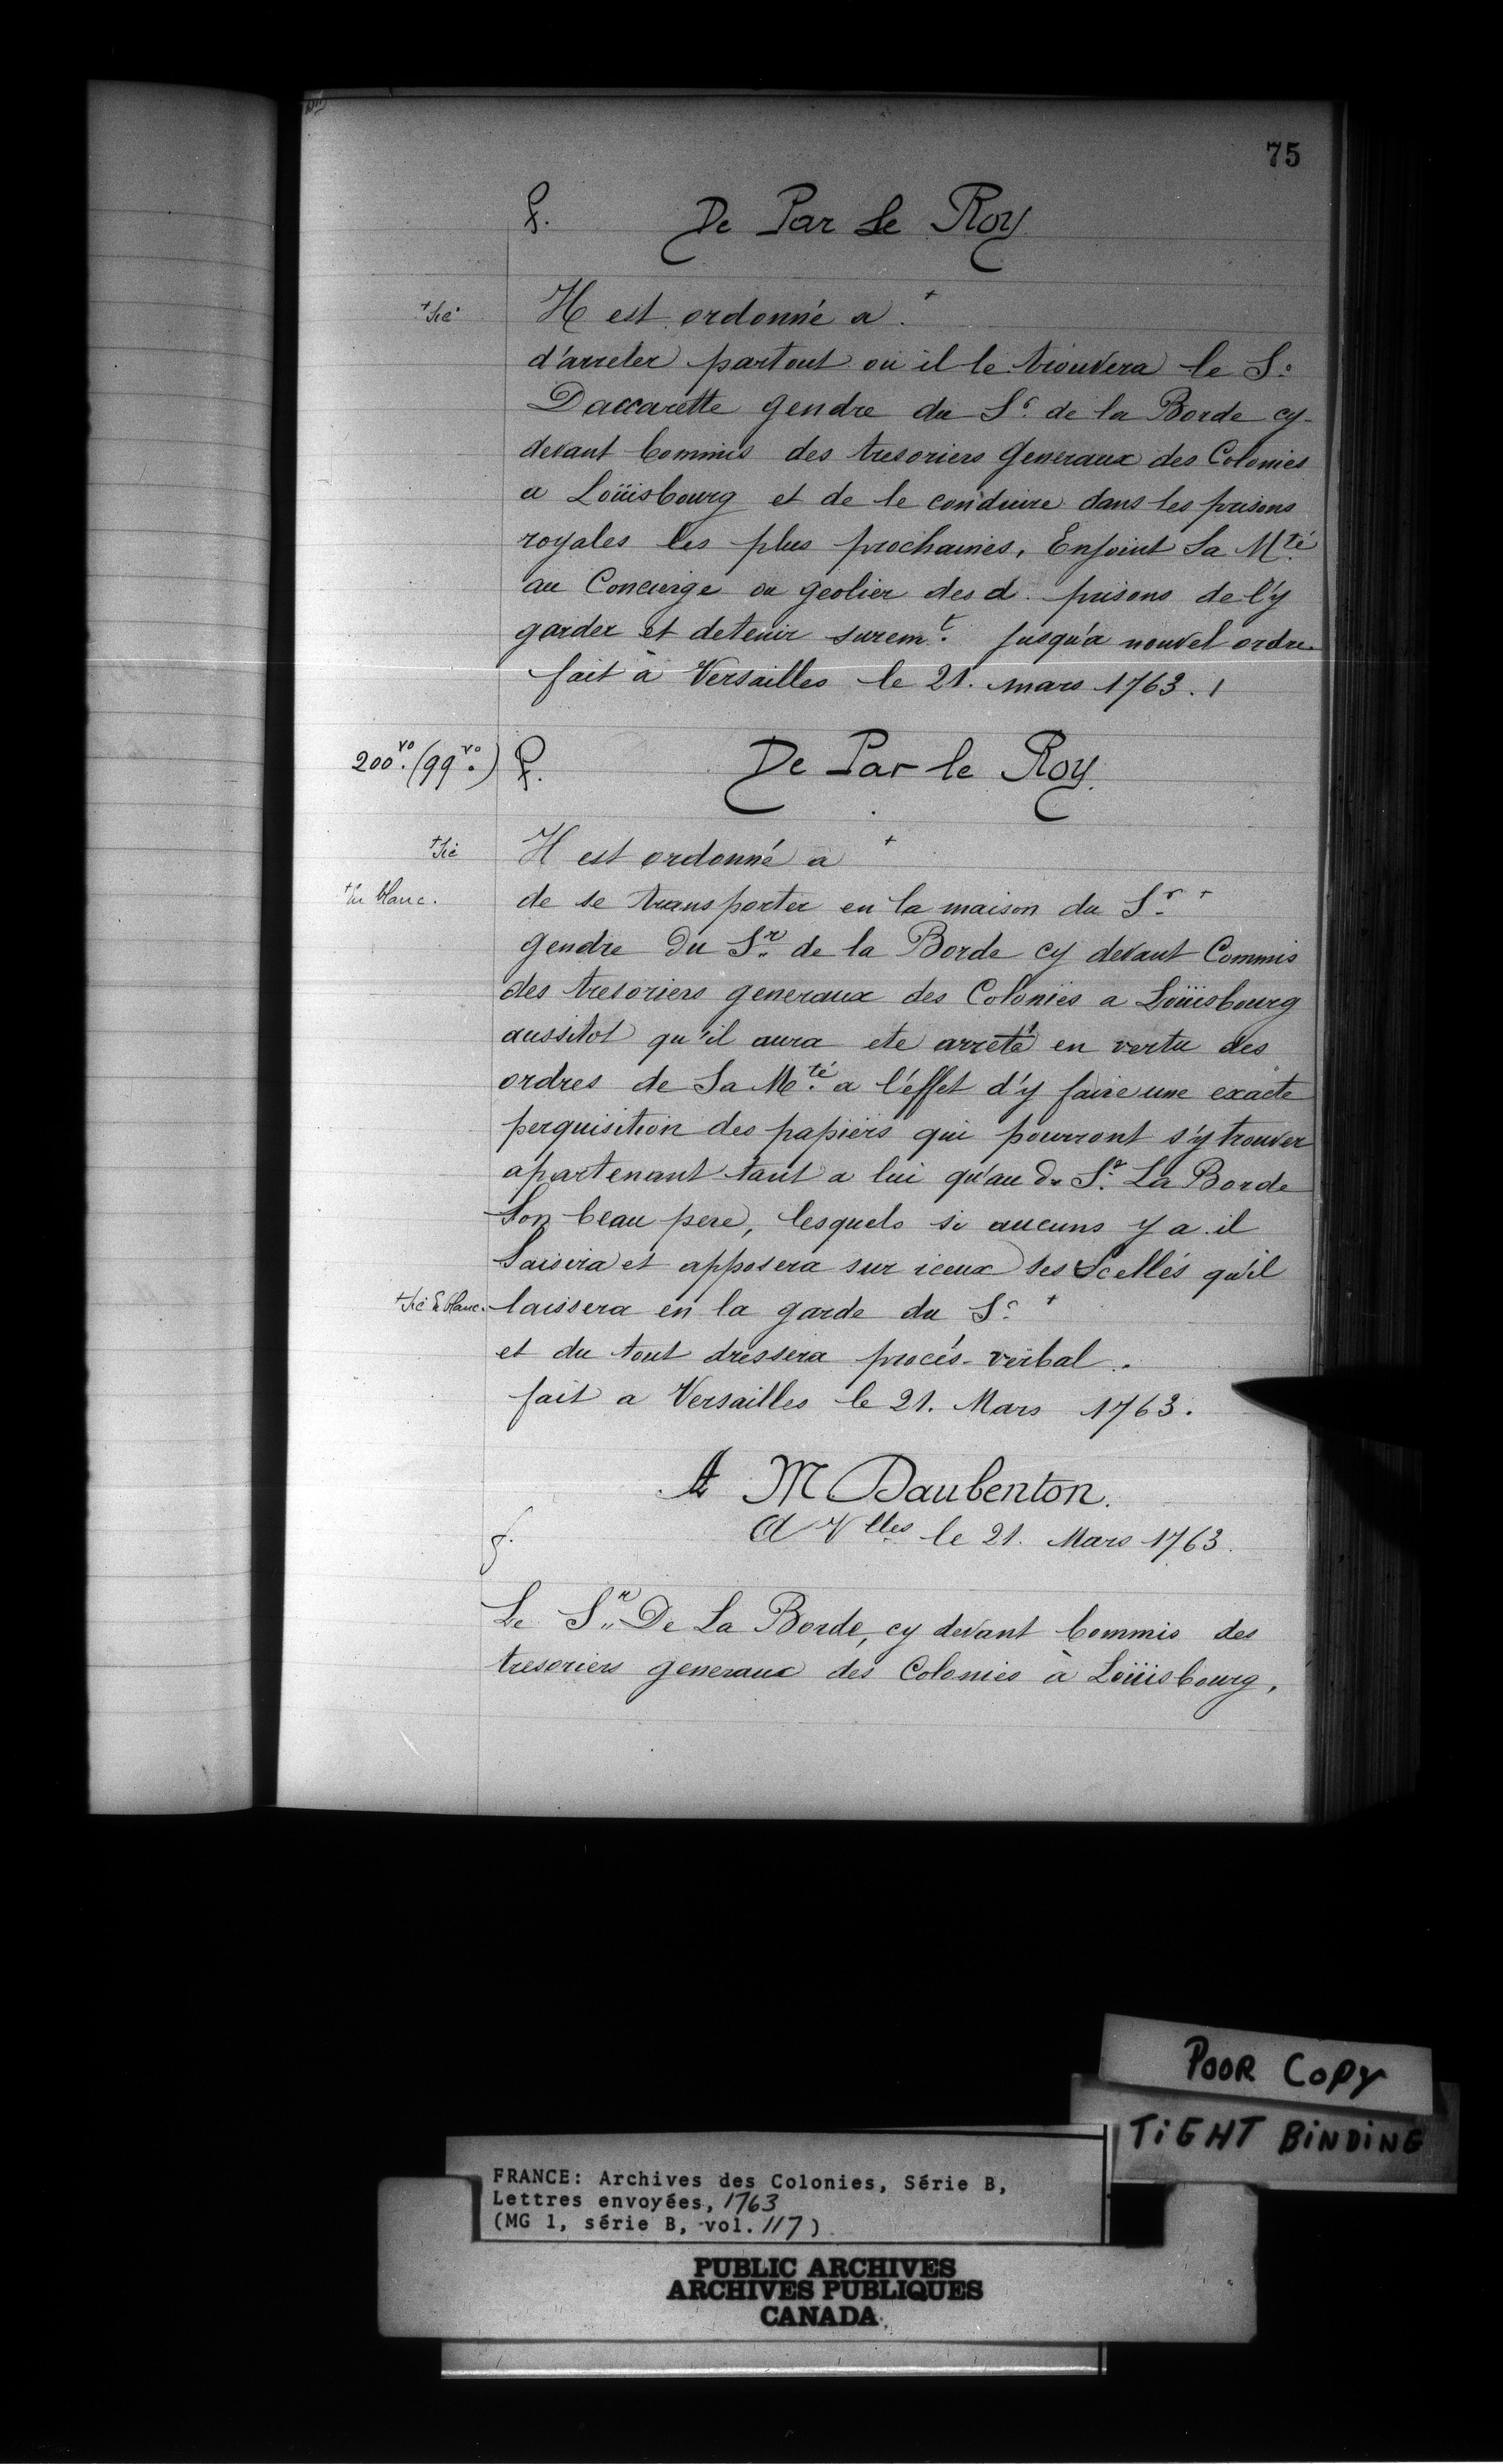 75
f. De Par Le Roy
+ sic Il est ordonné a +
d'arreter partout ou il le trouvera le Sr.
Daccarette gendre du Sr. de la Borde cy-
devant Commis des tresoriers Generaux des Colonies
a Loüisbourg et de le conduire dans les prisons
royales les plus prochaines, Enjoint Sa Mté.
au Concierge ou geolier des d. prisons de l'y
garder et detenir suremt. Jusqu'a nouvel ordre.
fait à Versailles le 21. mars 1763. /
200vo. (99vo.) f. De Par le Roy.
+ sic Il est ordonné a +
+ En blanc. de se transporter en la maison du Sr. +
gendre Du Sr. de la Borde cy devant Commis
des tresoriers generaux des Colonies a Loüisbourg
aussitot qu'il aura ete arreté en vertu des
ordres de Sa Mté. a l'éffet d'y faire une exacte
perquisition des papiers qui pourront s'y trouver
apartenant tant a lui qu'au d. Sr. La Borde
Son beau pere, lesquels si aucuns y a il
Saisira et apposera sur iceux ses Scellés qu'il
+ sic En blanc. laissera en la garde du Sr. +
et du tout dressera procés-verbal.
fait a Versailles le 21. Mars 1763.
A M Daubenton.
f. A Vlles le 21. Mars 1763.
Le Sr. De La Borde, cy devant Commis des
tresoriers generaux des Colonies à Loüisbourg,
POOR COPY
TIGHT BINDING
FRANCE: Archives des Colonies, Série B,
Lettres envoyées, 1763
(MG 1, série B, vol. 117)
PUBLIC ARCHIVES
ARCHIVES PUBLIQUES
CANADA